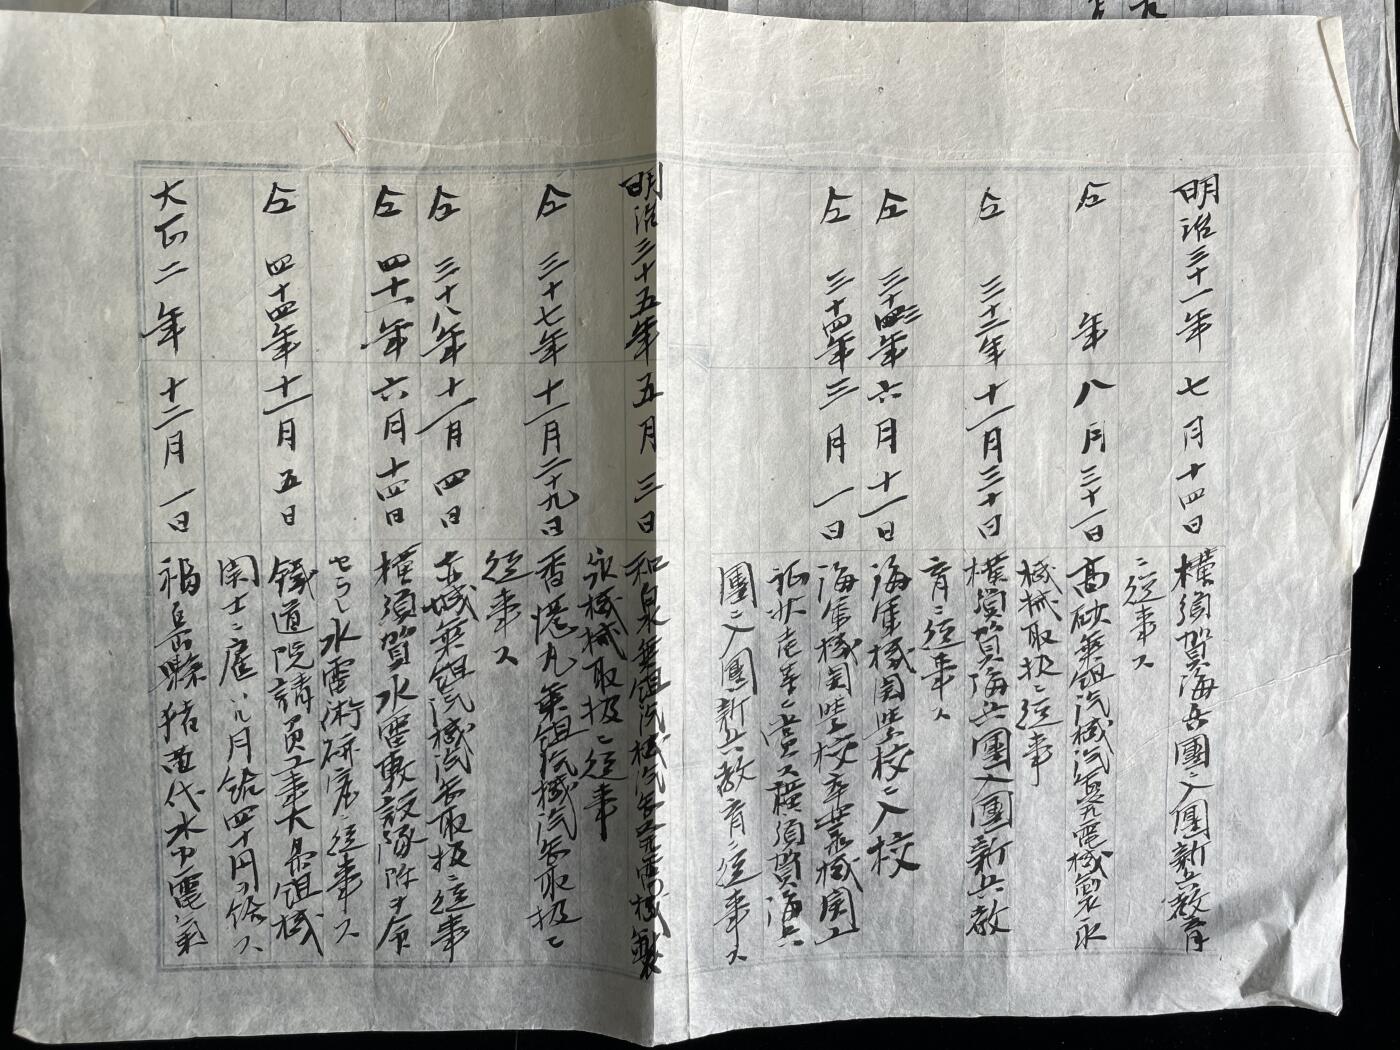 明治三十一年 七月十四日 横須賀海兵團ニ入團新兵教育
ニ從事ス
仝 年 八月三十一日 高砂乗組汽械汽缶発電機製氷
械械取扱ニ從事
仝 三十二年 十一月三十日 横須賀海兵團入團新兵教
育ニ從事ス
仝 三十三年 六月十一日 海軍機関学校ニ入校
仝 三十四年 三月一日 海軍機関学校卒業機関工
証状壱等ヲ賞ス横須賀海兵
團ニ入團新兵教育ニ從事ス
明治三十五年 五月三日 和泉乗組汽械汽缶発電機製
氷械械取扱ニ從事
仝 三十七年 十一月二十九日 香港丸乗組汽械汽缶取扱ニ
從事ス
仝 三十八年 十一月四日 赤城乗組汽械汽缶取扱ニ從事
仝 四十一年 六月十四日 横須賀水雷敷設隊附ヲ命
セラレ水雷術研究ニ從事ス
仝 四十四年 十一月五日 鐵道院請負工事大島組機
関士ニ雇ハレ月給四十円ヲ給ス
大正二年 十二月一日 福島縣猪苗代水力電氣